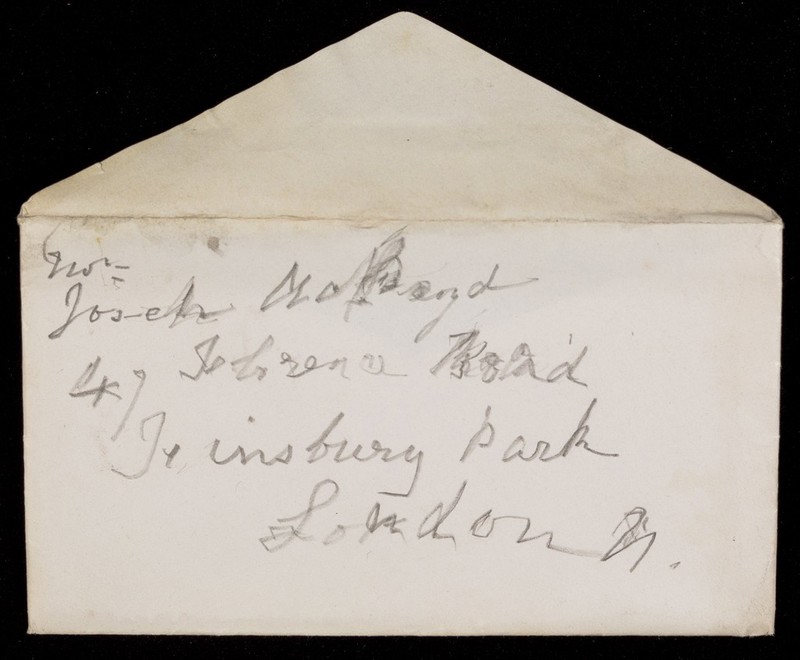 Mr
Joseph Boyd
47 Florence Road
Finsbury Park
London N.